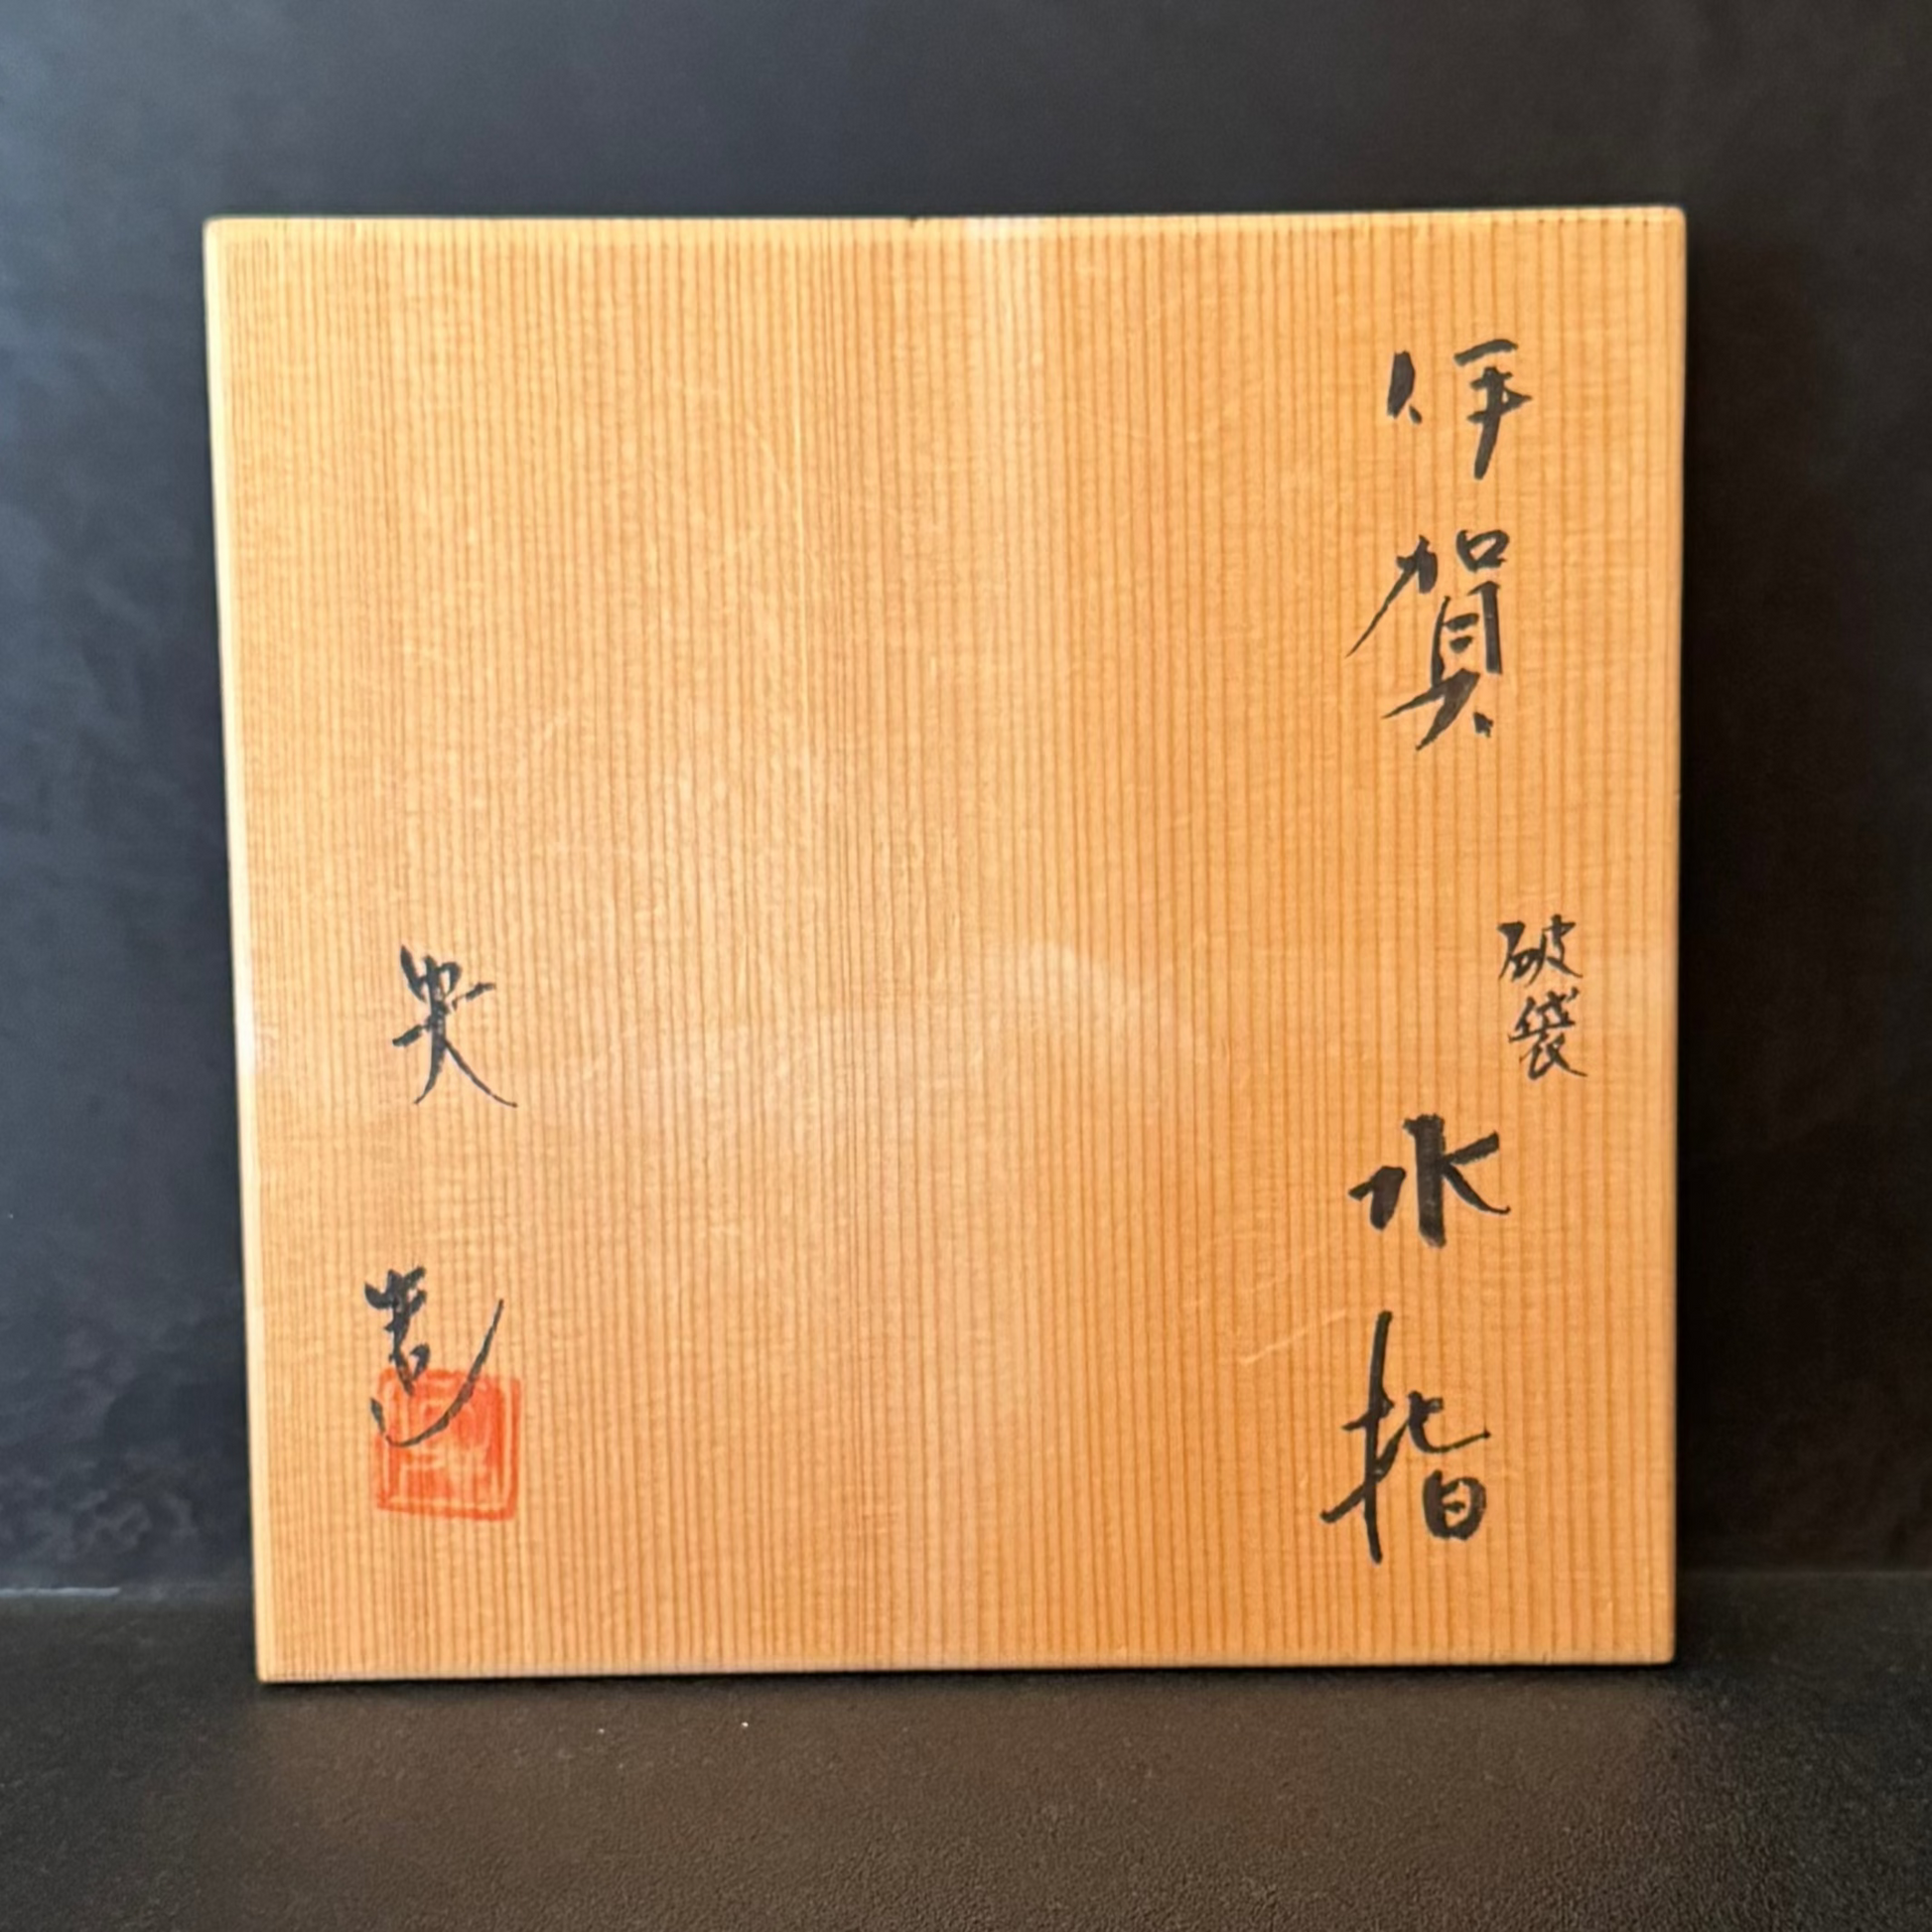 伊賀
破袋
水指
造